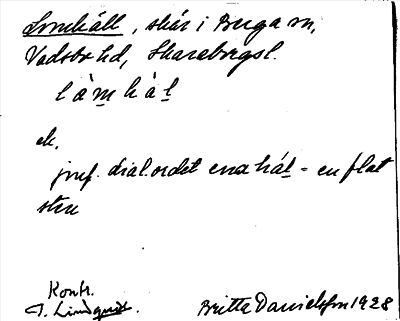 Lomhäll, skär i Berga sn,
Vadsbo hd, Skaraborgsl.
làmhàl
ek.
jmf. dial.ordet ena hál = en flat
sten
Kontr.
I. Lindquist.
Britta Danielsson 1928